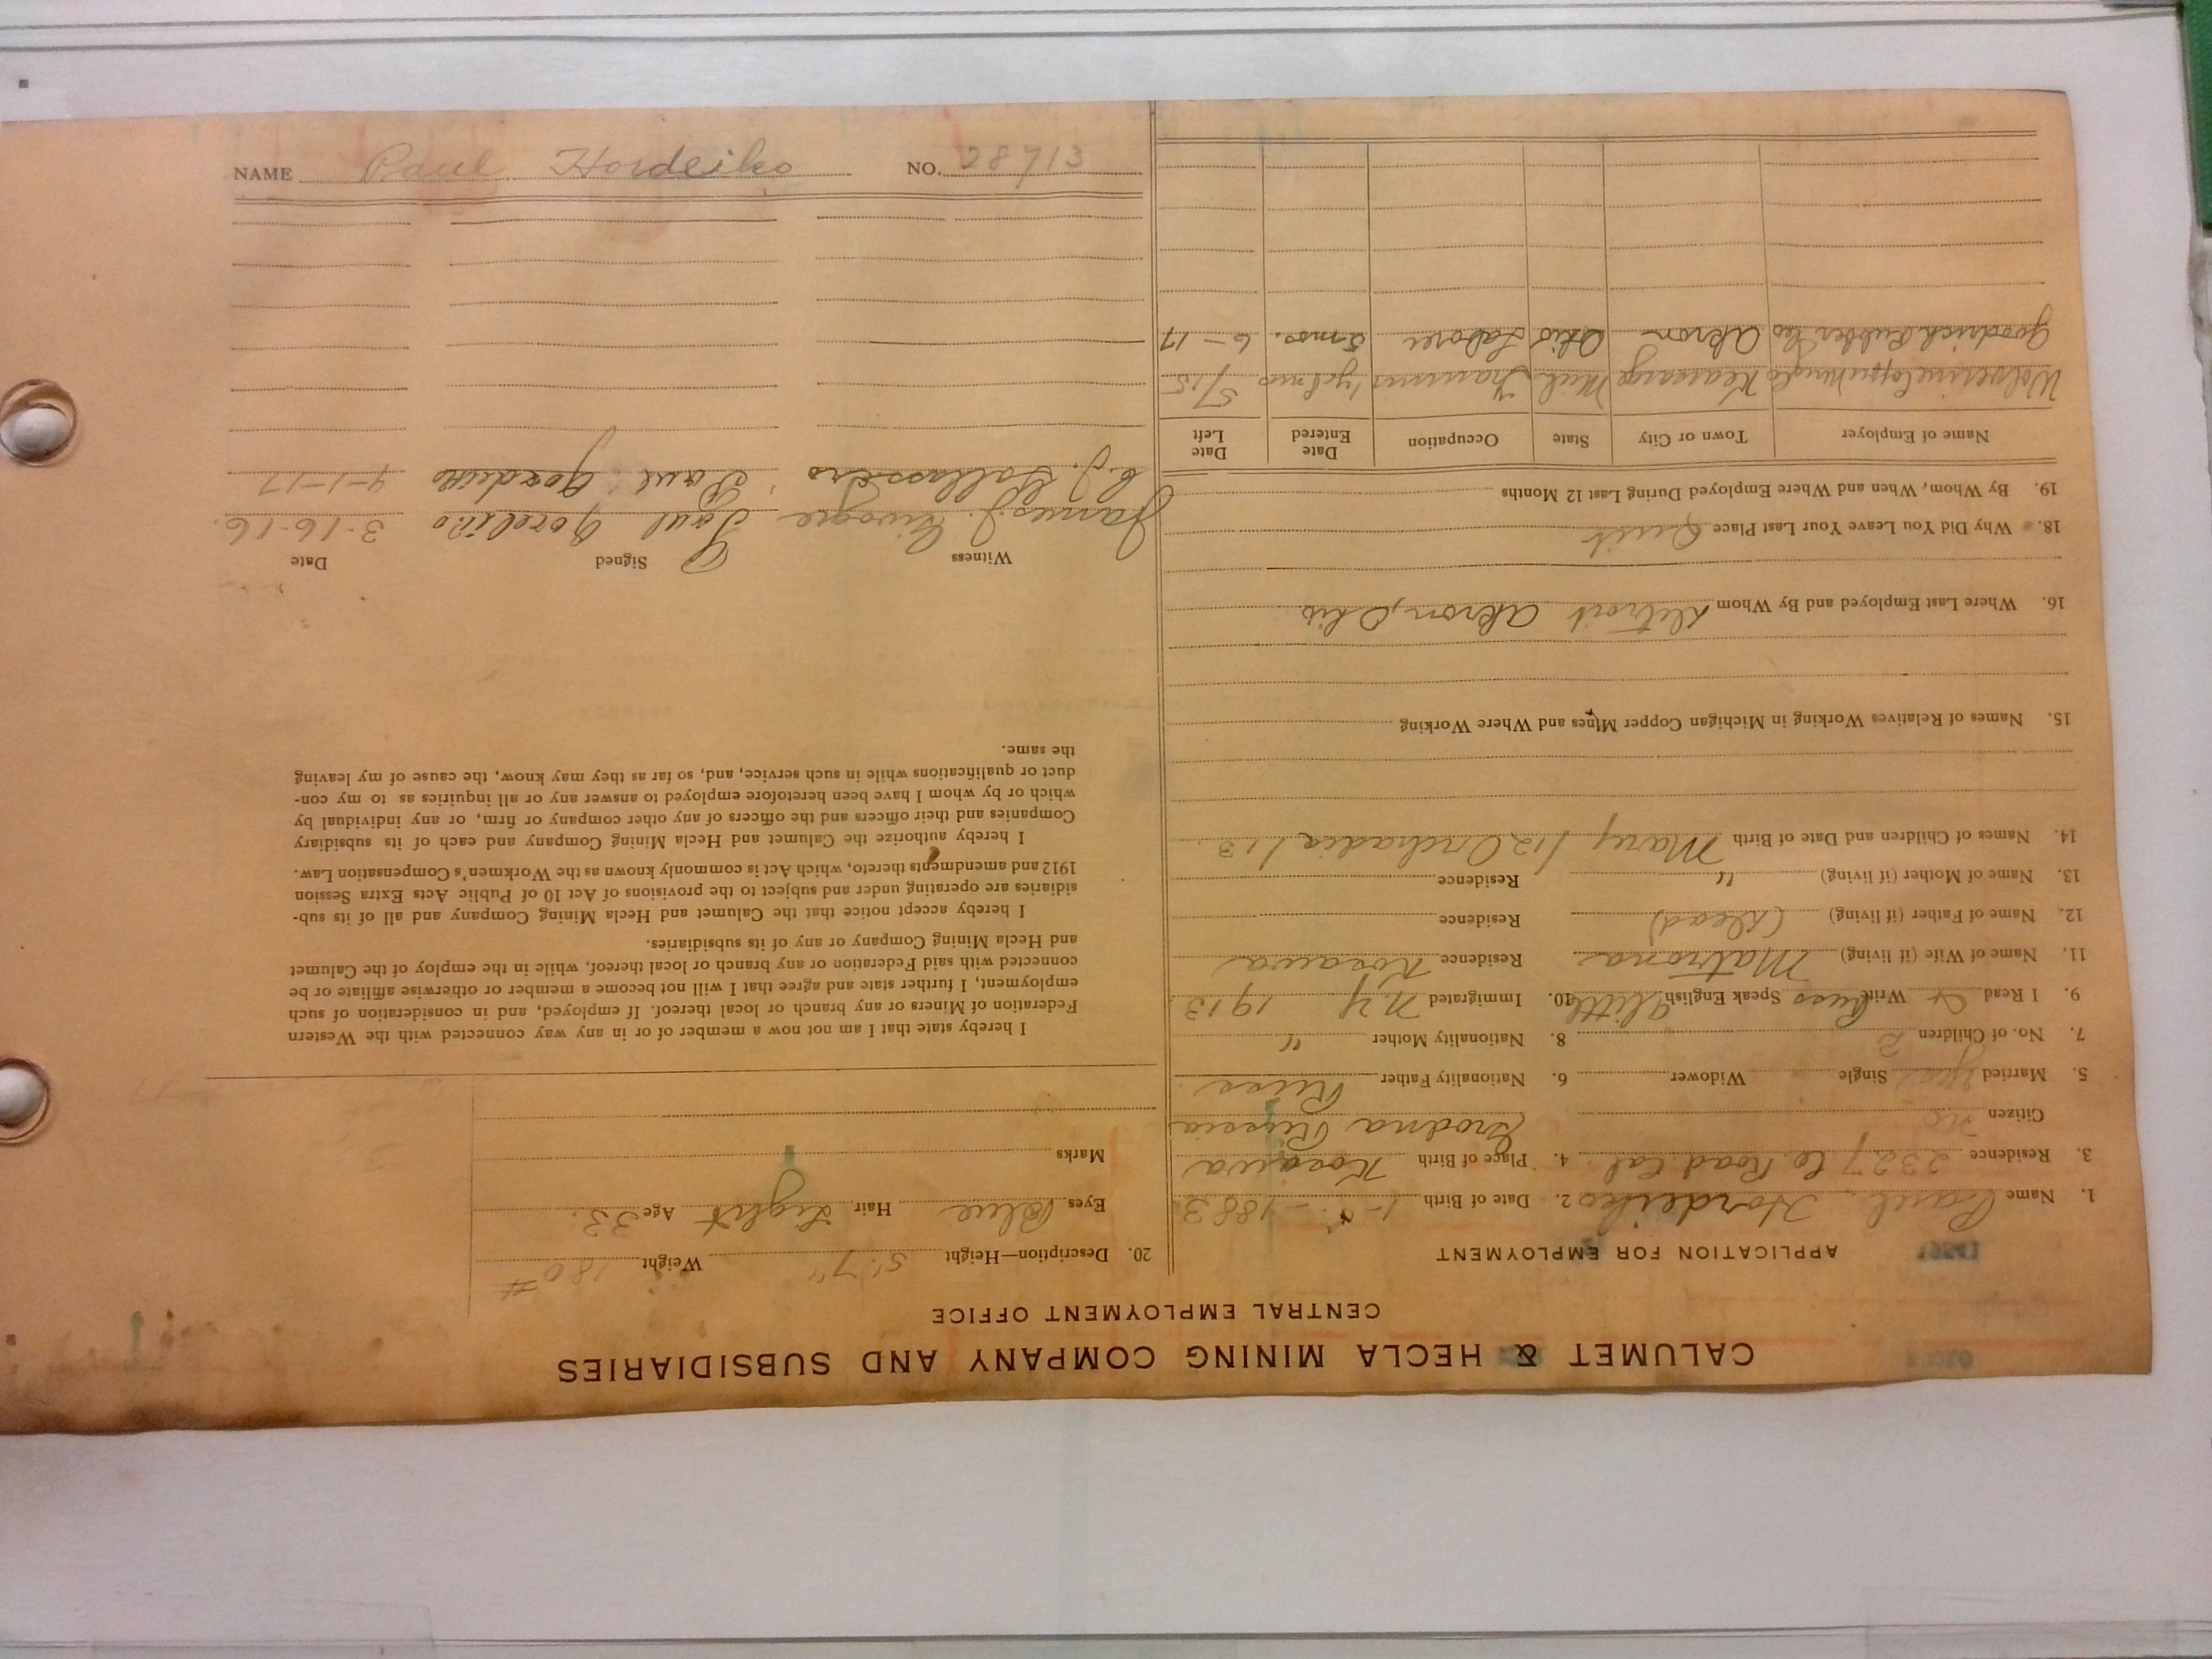 CALUMET & HECLA MINING COMPANY AND SUBSIDIARIES
CENTRAL EMPLOYMENT OFFICE
APPLICATION FOR EMPLOYMENT
1. Name Paul Hordeiko 2. Date of Birth 1883
3. Residence 2327 Co. Road Cal. 4. Place of Birth Kosawa
Citizen no Grodna Russia
5. Married yes Single Widower 6. Nationality Father Russ
7. No. of Children 2 8. Nationality Mother "
9. I Read & Write Russ Speak English a little 10. Immigrated N.Y. 1913
11. Name of Wife (if living) Matrona Residence Kosawa
12. Name of Father (if living) (Dead) Residence
13. Name of Mother (if living) " Residence
14. Names of Children and Date of Birth Mary /12 /13
15. Names of Relatives Working in Michigan Copper Mines and Where Working
16. Where Last Employed and By Whom Detroit Akron, Ohio
18. Why Did You Leave Your Last Place Quit
19. By Whom, When and Where Employed During Last 12 Months
Name of Employer Town or City State Occupation Date Entered Date Left
Wolverine Copper Mining Co Kearsarge Mich Trammer 1 yr 8 mos 5/15
Goodrich Rubber Co Akron Ohio Laborer 5 mos. 6-17
20. Description—Height 5' 7" Weight 180 #
Eyes Blue Hair Light Age 33.
Marks
I hereby state that I am not now a member of or in any way connected with the Western
Federation of Miners or any branch or local thereof. If employed, and in consideration of such
employment, I further state and agree that I will not become a member or otherwise affiliate or be
connected with said Federation or any branch or local thereof, while in the employ of the Calumet
and Hecla Mining Company or any of its subsidiaries.
I hereby accept notice that the Calumet and Hecla Mining Company and all of its sub-
sidiaries are operating under and subject to the provisions of Act 10 of Public Acts Extra Session
1912 and amendments thereto, which Act is commonly known as the Workmen's Compensation Law.
I hereby authorize the Calumet and Hecla Mining Company and each of its subsidiary
Companies and their officers and the officers of any other company or firm, or any individual by
which or by whom I have been heretofore employed to answer any or all inquiries as to my con-
duct or qualifications while in such service, and, so far as they may know, the cause of my leaving
the same.
Witness Signed Date
James J. Paul Gordiko 3-16-16.
C. J. Paul Gordeiko 9-1-17
NAME Paul Hordeiko NO. 28713